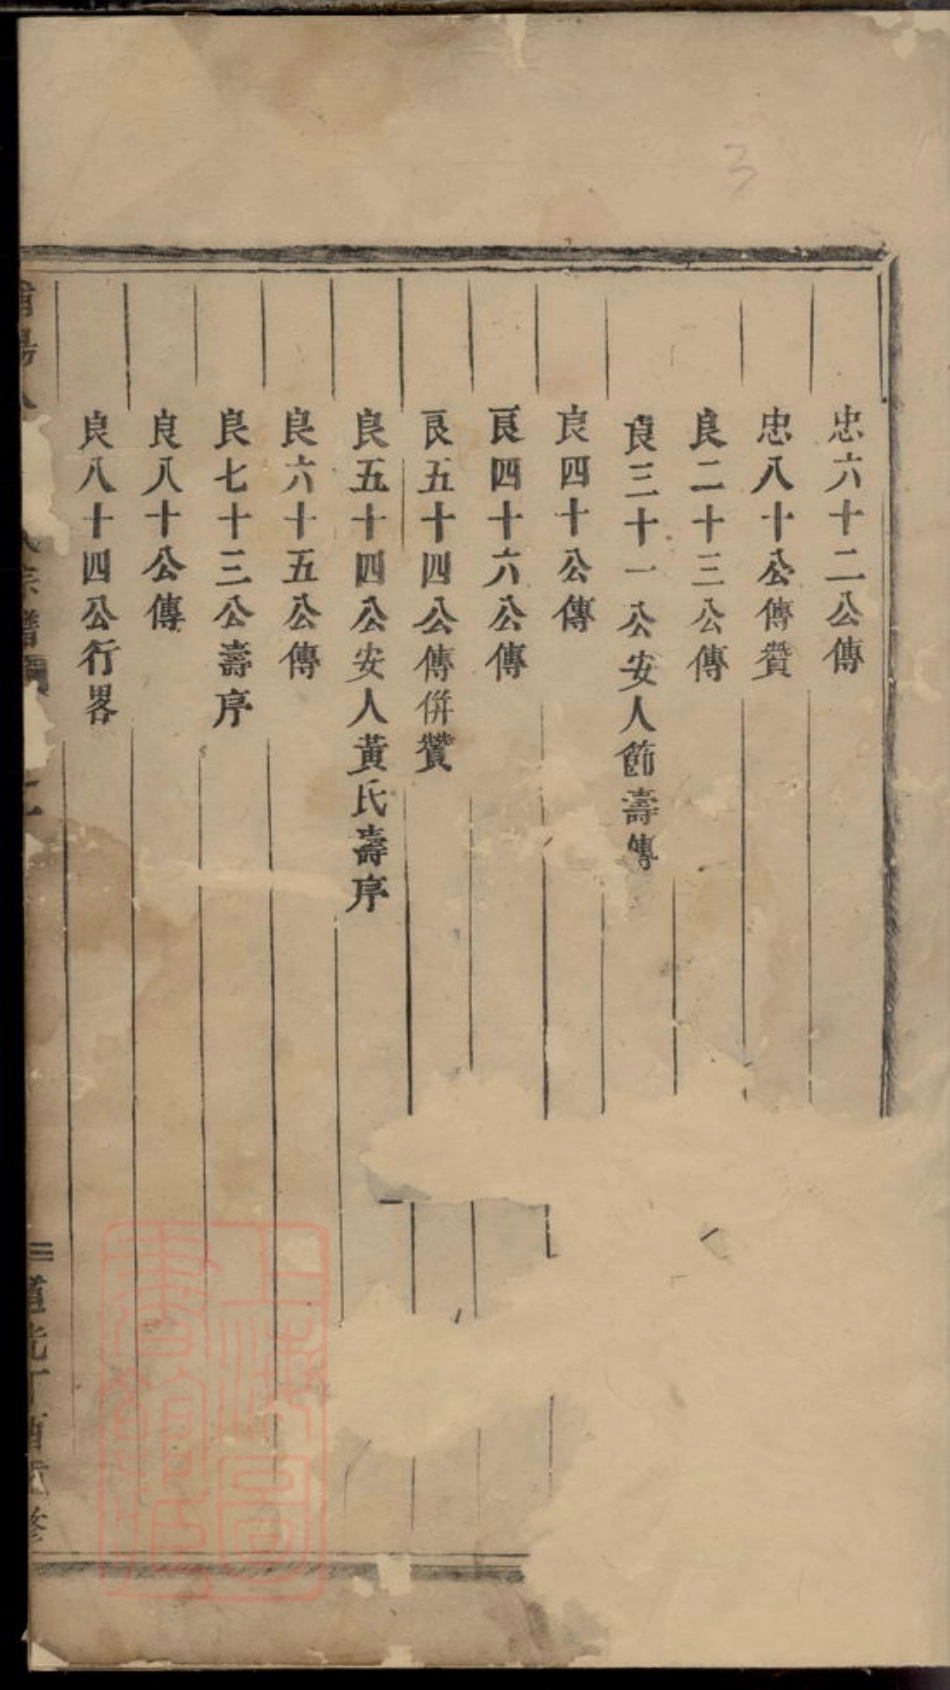 忠六十二公傳
忠八十公傳贊
良二十三公傳
良三十一公安人節壽傳
良四十公傳
良四十六公傳
良五十四公傳併贊
良五十四公安人黃氏壽序
良六十五公傳
良七十三公壽序
良八十公傳
良八十四公行畧
氏宗譜
道光丁酉重修
上海圖書館藏
3